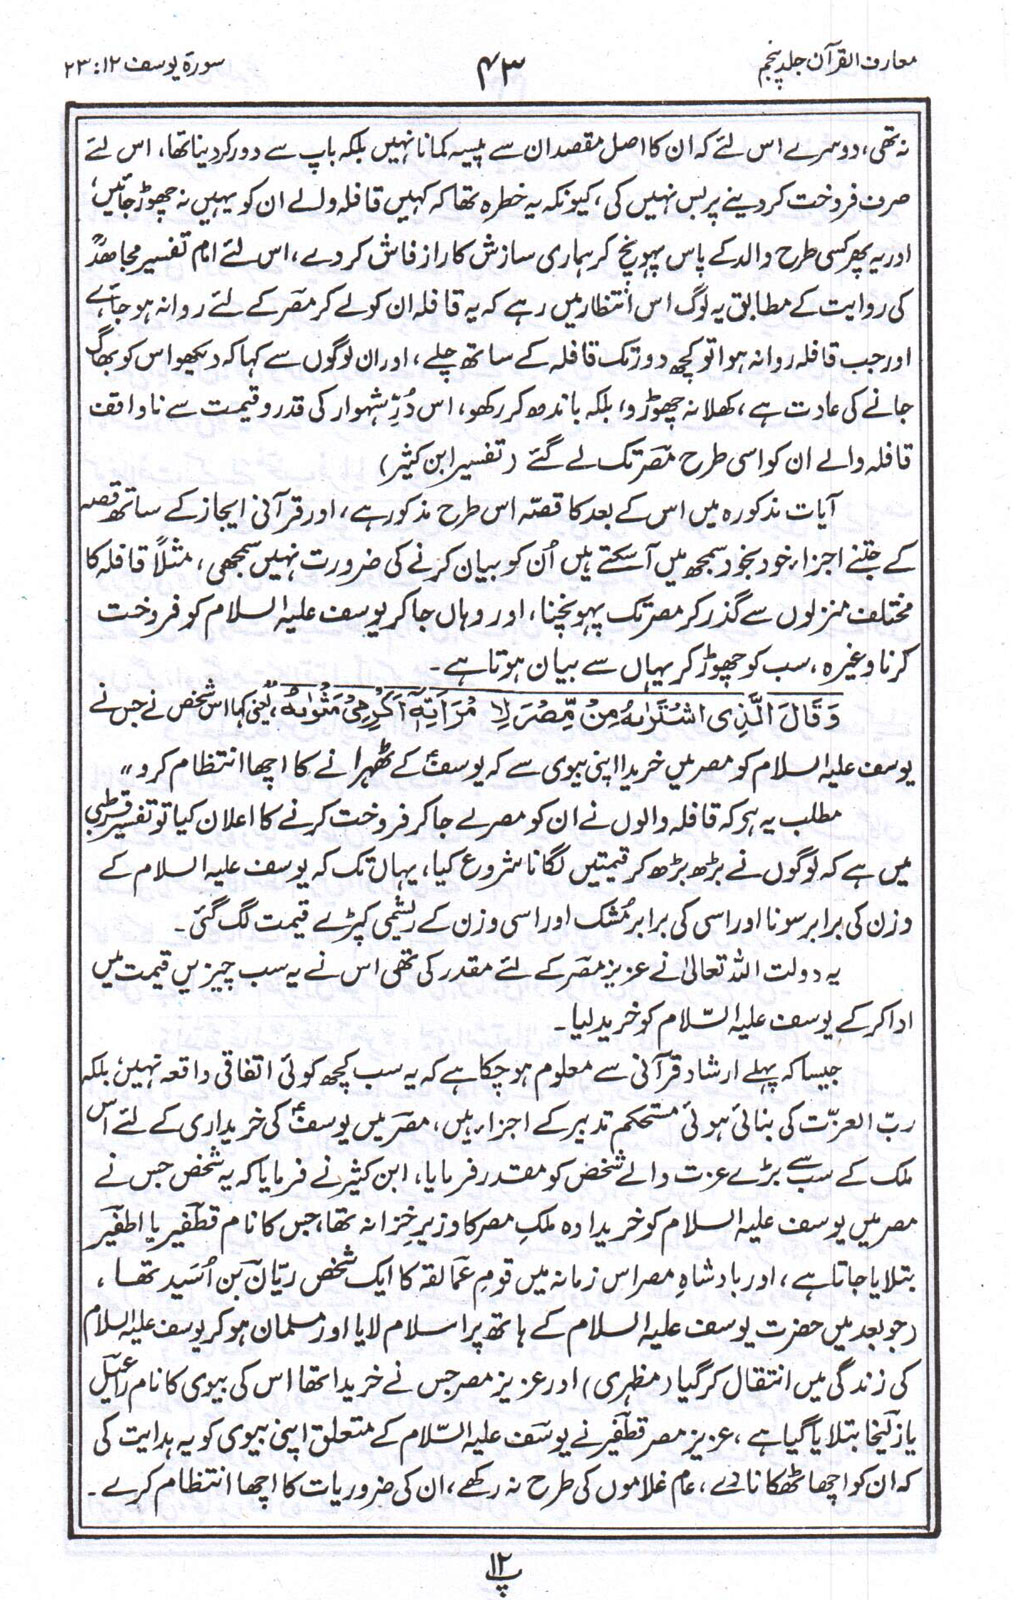 معارف القرآن جلد پنجم
۴۳
سورۃ یوسف ۱۲ : ۲۳
نہ تھی، دوسرے اس لئے کہ ان کا اصل مقصد ان سے پیسہ کمانا نہیں بلکہ باپ سے دور کر دینا تھا، اس لئے
صرف فروخت کر دینے پر بس نہیں کی، کیونکہ یہ خطرہ تھا کہ کہیں قافلہ والے ان کو یہیں نہ چھوڑ جائیں،
اور یہ پھر کسی طرح والد کے پاس پہونچ کر ہماری سازش کا راز فاش کر دے، اس لئے امام تفسیر مجاھدؒ
کی روایت کے مطابق یہ لوگ اس انتظار میں رہے کہ یہ قافلہ ان کو لے کر مصر کے لئے روانہ ہو جائے
اور جب قافلہ روانہ ہوا تو کچھ دور تک قافلہ کے ساتھ چلے، اور ان لوگوں سے کہا کہ دیکھو اس کو بھاگ
جانے کی عادت ہے، کھلا نہ چھوڑو، بلکہ باندھ کر رکھو، اس دُرِّ شہوار کی قدر و قیمت سے ناواقف
قافلہ والے ان کو اسی طرح مصر تک لے گئے (تفسیر ابن کثیر)
آیات مذکورہ میں اس کے بعد کا قصّہ اس طرح مذکور ہے، اور قرآنی ایجاز کے ساتھ قصہ
کے جتنے اجزاء خود بخود سمجھ میں آ سکتے ہیں اُن کو بیان کرنے کی ضرورت نہیں سمجھی، مثلاً قافلہ کا
مختلف منزلوں سے گذر کر مصر تک پہونچنا، اور وہاں جا کر یوسف علیہ السلام کو فروخت
کرنا وغیرہ، سب کو چھوڑ کر یہاں سے بیان ہوتا ہے۔
وَقَالَ الَّذِی اشْتَرٰىہُ مِنْ مِّصْرَ لِامْرَاَتِہٖٓ اَکْرِمِیْ مَثْوٰىہُ، یعنی کہا اس شخص نے جس نے
یوسف علیہ السلام کو مصر میں خریدا اپنی بیوی سے کہ یوسفؑ کے ٹھہرانے کا اچھا انتظام کرو"
مطلب یہ ہے کہ قافلہ والوں نے ان کو مصر لے جا کر فروخت کرنے کا اعلان کیا تو تفسیر قرطبی
میں ہے کہ لوگوں نے بڑھ بڑھ کر قیمتیں لگانا شروع کیا، یہاں تک کہ یوسف علیہ السلام کے
وزن کی برابر سونا اور اسی کی برابر مُشک اور اسی وزن کے ریشمی کپڑے قیمت لگ گئی۔
یہ دولت اللہ تعالیٰ نے عزیز مصر کے لئے مقدر کی تھی اس نے یہ سب چیزیں قیمت میں
ادا کر کے یوسف علیہ السّلام کو خرید لیا۔
جیسا کہ پہلے ارشاد قرآنی سے معلوم ہو چکا ہے کہ یہ سب کچھ کوئی اتفاقی واقعہ نہیں، بلکہ
ربّ العزّت کی بنائی ہوئی مستحکم تدبیر کے اجزاء ہیں، مصر میں یوسفؑ کی خریداری کے لئے اس
ملک کے سب سے بڑے عزت والے شخص کو مقدر فرمایا، ابن کثیرؒ نے فرمایا کہ یہ شخص جس نے
مصر میں یوسف علیہ السلام کو خریدا وہ ملکِ مصر کا وزیرِ خزانہ تھا، جس کا نام قطفیر یا اطفیر
بتلایا جاتا ہے، اور بادشاہِ مصر اس زمانہ میں قومِ عمالقہ کا ایک شخص ریّان بن اُسَید تھا،
(جو بعد میں حضرت یوسف علیہ السلام کے ہاتھ پر اسلام لایا اور مسلمان ہو کر یوسف علیہ السلام
کی زندگی میں انتقال کر گیا (مظہری) اور عزیز مصر جس نے خریدا تھا اس کی بیوی کا نام راعیل
یا زلیخا بتلایا گیا ہے، عزیز مصر قطفیر نے یوسف علیہ السّلام کے متعلق اپنی بیوی کو یہ ہدایت کی
کہ ان کو اچھا ٹھکانا دے، عام غلاموں کی طرح نہ رکھے، ان کی ضروریات کا اچھا انتظام کرے۔
۱۲